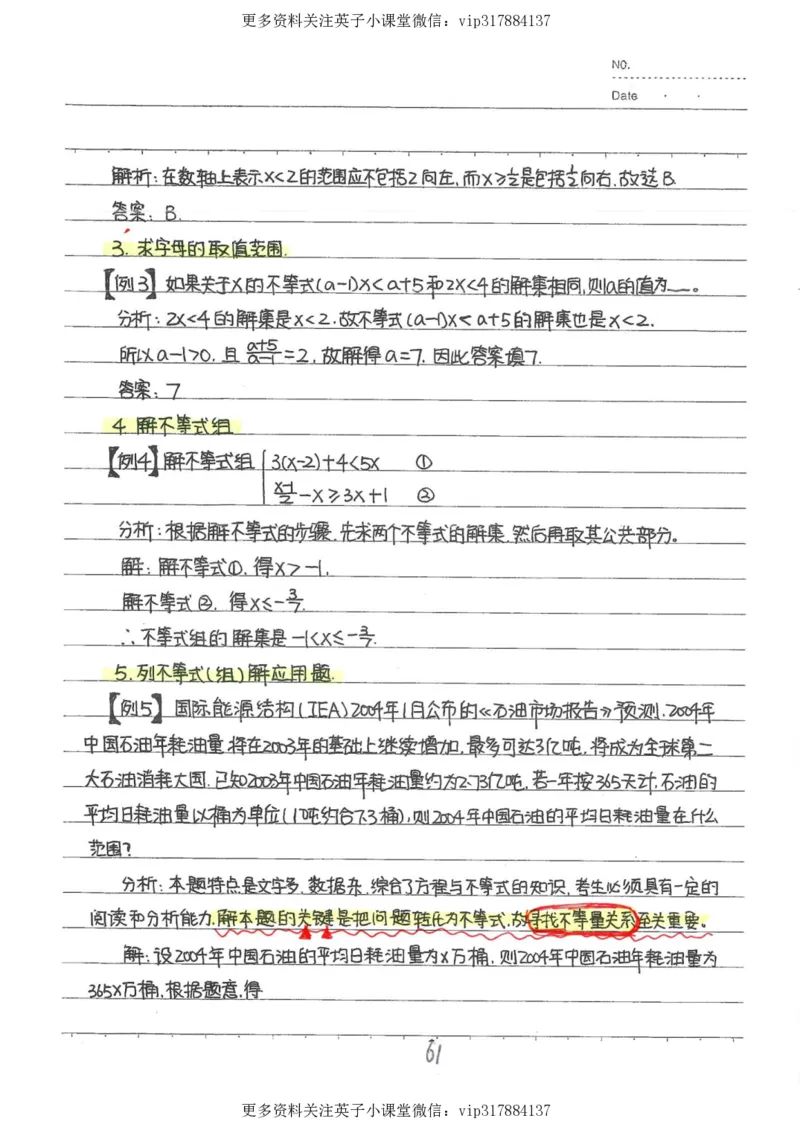 更多资料关注英子小课堂微信：vip317884137
NO.
Date
解析：在数轴上表示x<2的范围应不包括2向左，而x≥½是包括½向右，故选B.
答案：B.
3. 求字母的取值范围.
【例3】如果关于x的不等式(a-1)x<a+5和2x<4的解集相同，则a的值为__。
分析：2x<4的解集是x<2.故不等式(a-1)x<a+5的解集也是x<2.
所以a-1>0，且 (a+5)/(a-1)=2，故解得a=7. 因此答案填7.
答案：7
4 解不等式组
【例4】解不等式组 3(x-2)+4<5x ①
(x-1)/2-x≥3x+1 ②
分析：根据解不等式的步骤，先求两个不等式的解集，然后再取其公共部分。
解：解不等式①，得x>-1.
解不等式②，得x≤-3/7.
∴不等式组的解集是-1<x≤-3/7.
5.列不等式(组)解应用题.
【例5】国际能源结构(IEA)2004年1月公布的《石油市场报告》预测，2004年
中国石油年耗油量将在2003年的基础上继续增加，最多可达3亿吨，将成为全球第二
大石油消耗大国.已知2003年中国石油年耗油量约为2.73亿吨，若一年按365天计，石油的
平均日耗油量以桶为单位(1吨约合7.3桶)，则2004年中国石油的平均日耗油量在什么
范围？
分析：本题特点是文字多，数据杂，综合了方程与不等式的知识，考生必须具有一定的
阅读和分析能力.解本题的关键是把问题转化为不等式，故寻找不等量关系至关重要。
解：设2004年中国石油的平均日耗油量为x万桶，则2004年中国石油年耗油量为
365x万桶，根据题意，得
61
更多资料关注英子小课堂微信：vip317884137